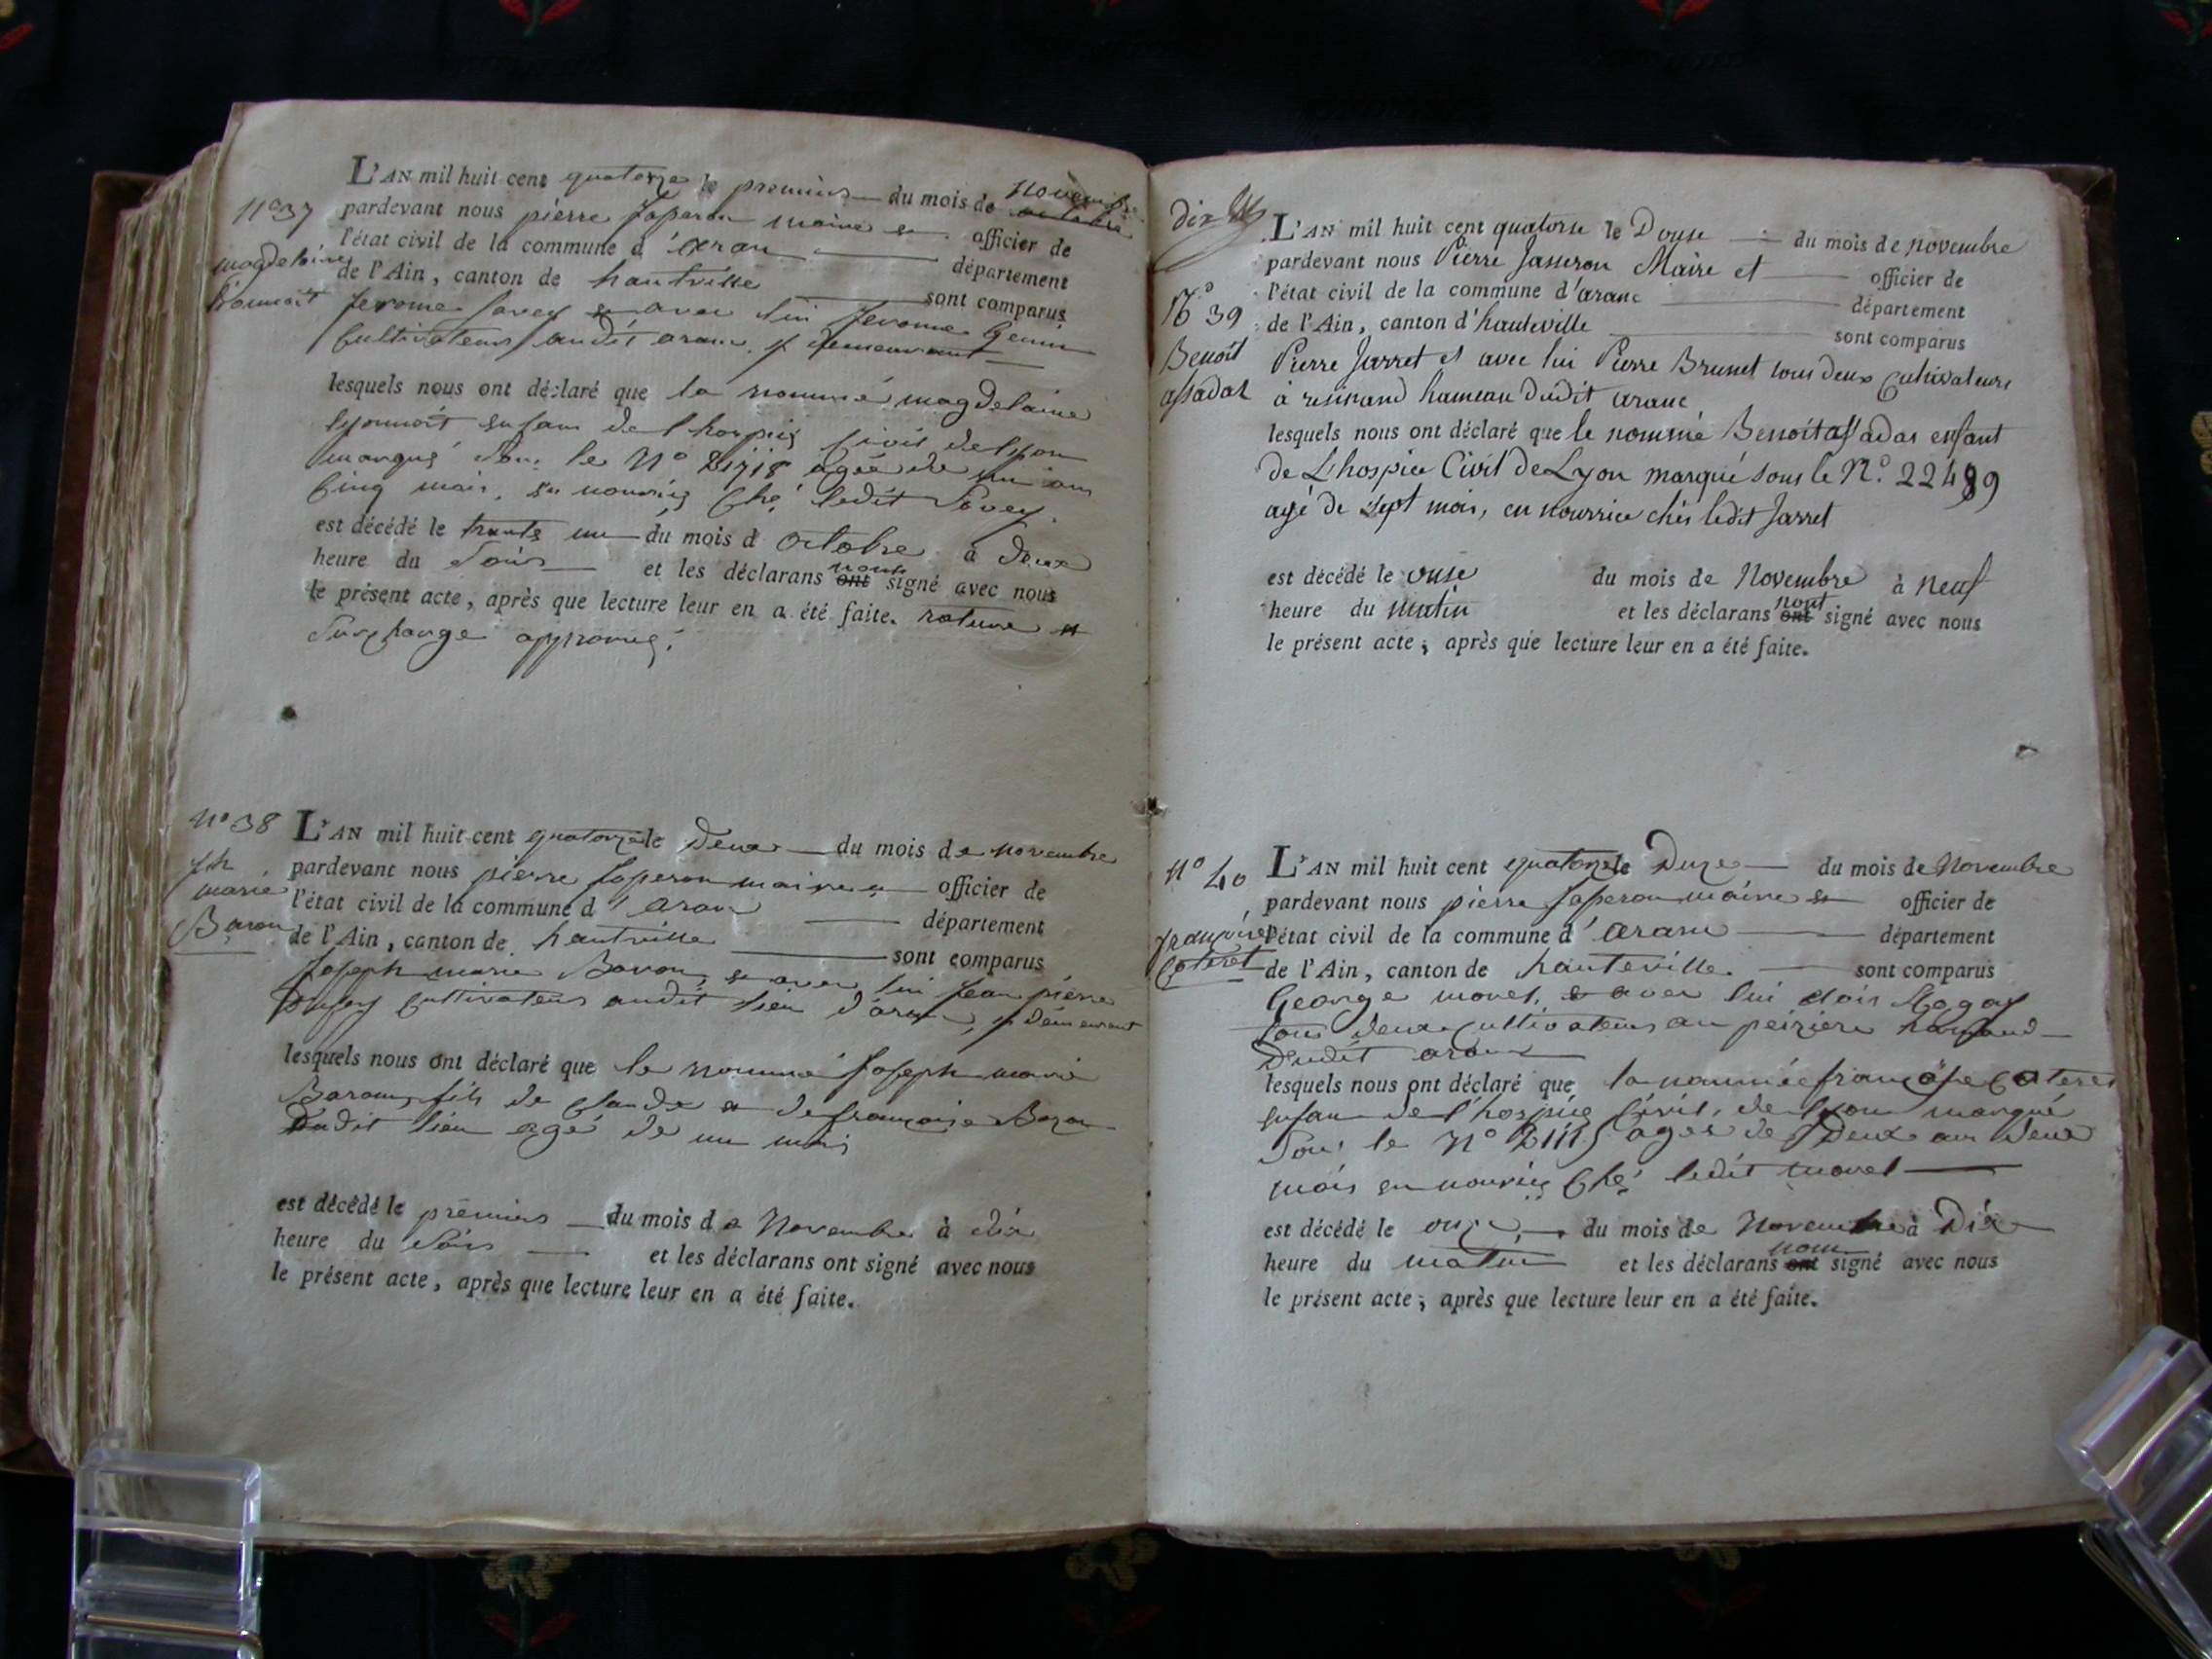 L'AN mil huit cent quatorze le premier du mois de novembre
N° 37
pardevant nous pierre Jasseron maire et officier de
l'état civil de la commune d'aran département
magdelaine
de l'Ain, canton de hautville sont comparus
lionnoit
Jerome Savey et avec lui Jerome Genin
Cultivateurs audit aran y demeurant
lesquels nous ont déclaré que la nommé magdelaine
lyonnoit enfant de l'hospice Civil de lyon
marqué sous le N° 21718 agée de un an
Cinq mois, en nourrice Ché ledit Savey.
est décédé le trante un du mois d octobre à deux
heure du Soir et les déclarans nont signé avec nous
le présent acte, après que lecture leur en a été faite. rature et
Surcharge approuvé.
N° 38
L'AN mil huit cent quatorze le Deux du mois de novembre
jph
pardevant nous pierre Jasseron maire et officier de
marie
l'état civil de la commune d'aran département
Baron
de l'Ain, canton de hautville sont comparus
Joseph marie Baron, et avec lui Jean pierre
cultivateurs audit lieu d'aran, y demeurant
lesquels nous ont déclaré que le nommé Joseph marie
Baron, fils de Claude et de françoise
Dudit lieu agé de un mois
est décédé le premier du mois de Novembre à dix
heure du Soir et les déclarans ont signé avec nous
le présent acte, après que lecture leur en a été faite.
dix
L'AN mil huit cent quatorse le Douse du mois de novembre
pardevant nous Pierre Jasseron Maire et officier de
l'état civil de la commune d'aranc département
N.° 39
de l'Ain, canton d'hauteville sont comparus
Benoît
assadat
Pierre Jarret et avec lui Pierre Brunet tous deux Cultivateurs
à resinand hameau dudit aranc
lesquels nous ont déclaré que le nommé Benoit assadas enfant
de L'hospice Civil de Lyon marqué sous le N.° 22489
agé de sept mois, en nourrice chés ledit Jarret
est décédé le onse du mois de Novembre à neuf
heure du matin et les déclarans nont signé avec nous
le présent acte, après que lecture leur en a été faite.
N° 40
L'AN mil huit cent quatorze le Duze du mois de Novembre
pardevant nous pierre Jasseron maire et officier de
françoise
l'état civil de la commune d'aran département
Coteret
de l'Ain, canton de hauteville. sont comparus
George morel, et avec lui
tous deux Cultivateurs au
Dudit aran
lesquels nous ont déclaré que la nommée françoise Coteret
enfant de l'hospice Civil, de lyon marqué
Sous le N° 21115 agés de Deux ans deux
mois en nourrice Ché ledit morel
est décédé le onze, du mois de Novembre à Dix
heure du matin et les déclarans nont signé avec nous
le présent acte, après que lecture leur en a été faite.